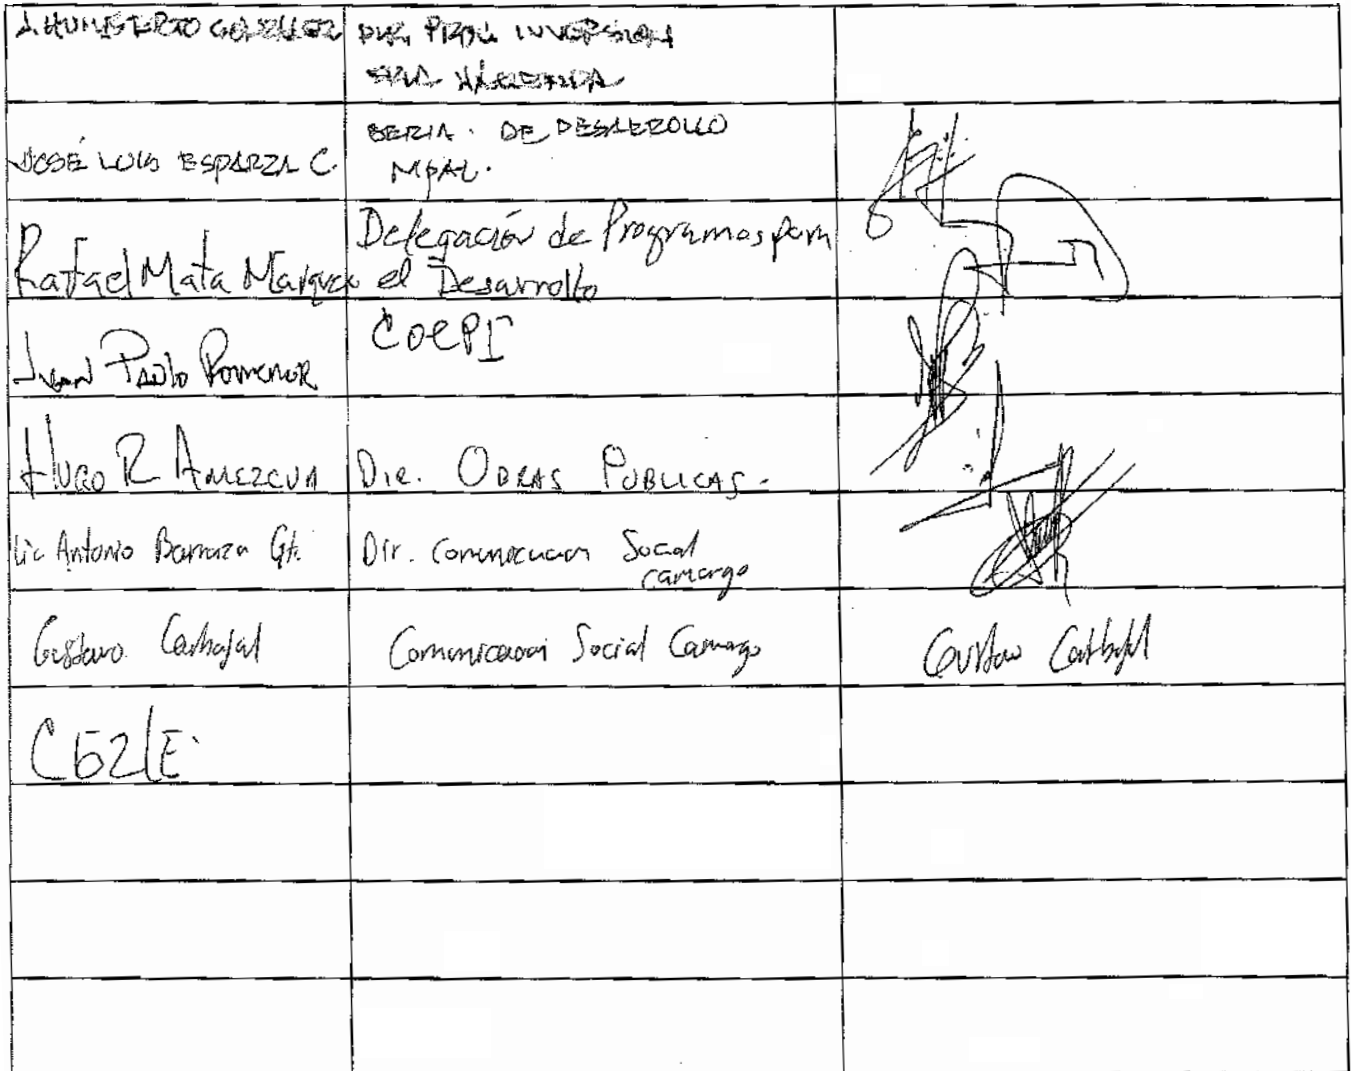 J. HUMBERTO GONZALEZ
DIR. PROG. INVERSION
SRIA HACIENDA
JOSÉ LUIS ESPARZA C.
SERIA. DE DESARROLLO
MPAL.
Rafael Mata Marquez
Delegación de Programas para
el Desarrollo
Juan Pablo
COEPI
HUGO R AMEZCUA
DIR. OBRAS PUBLICAS.
Lic Antonio Barraza Gt.
Dir. Comunicacion Social
Camargo
Gustavo Carbajal
Comunicacion Social Camargo
Gustavo Carbajal